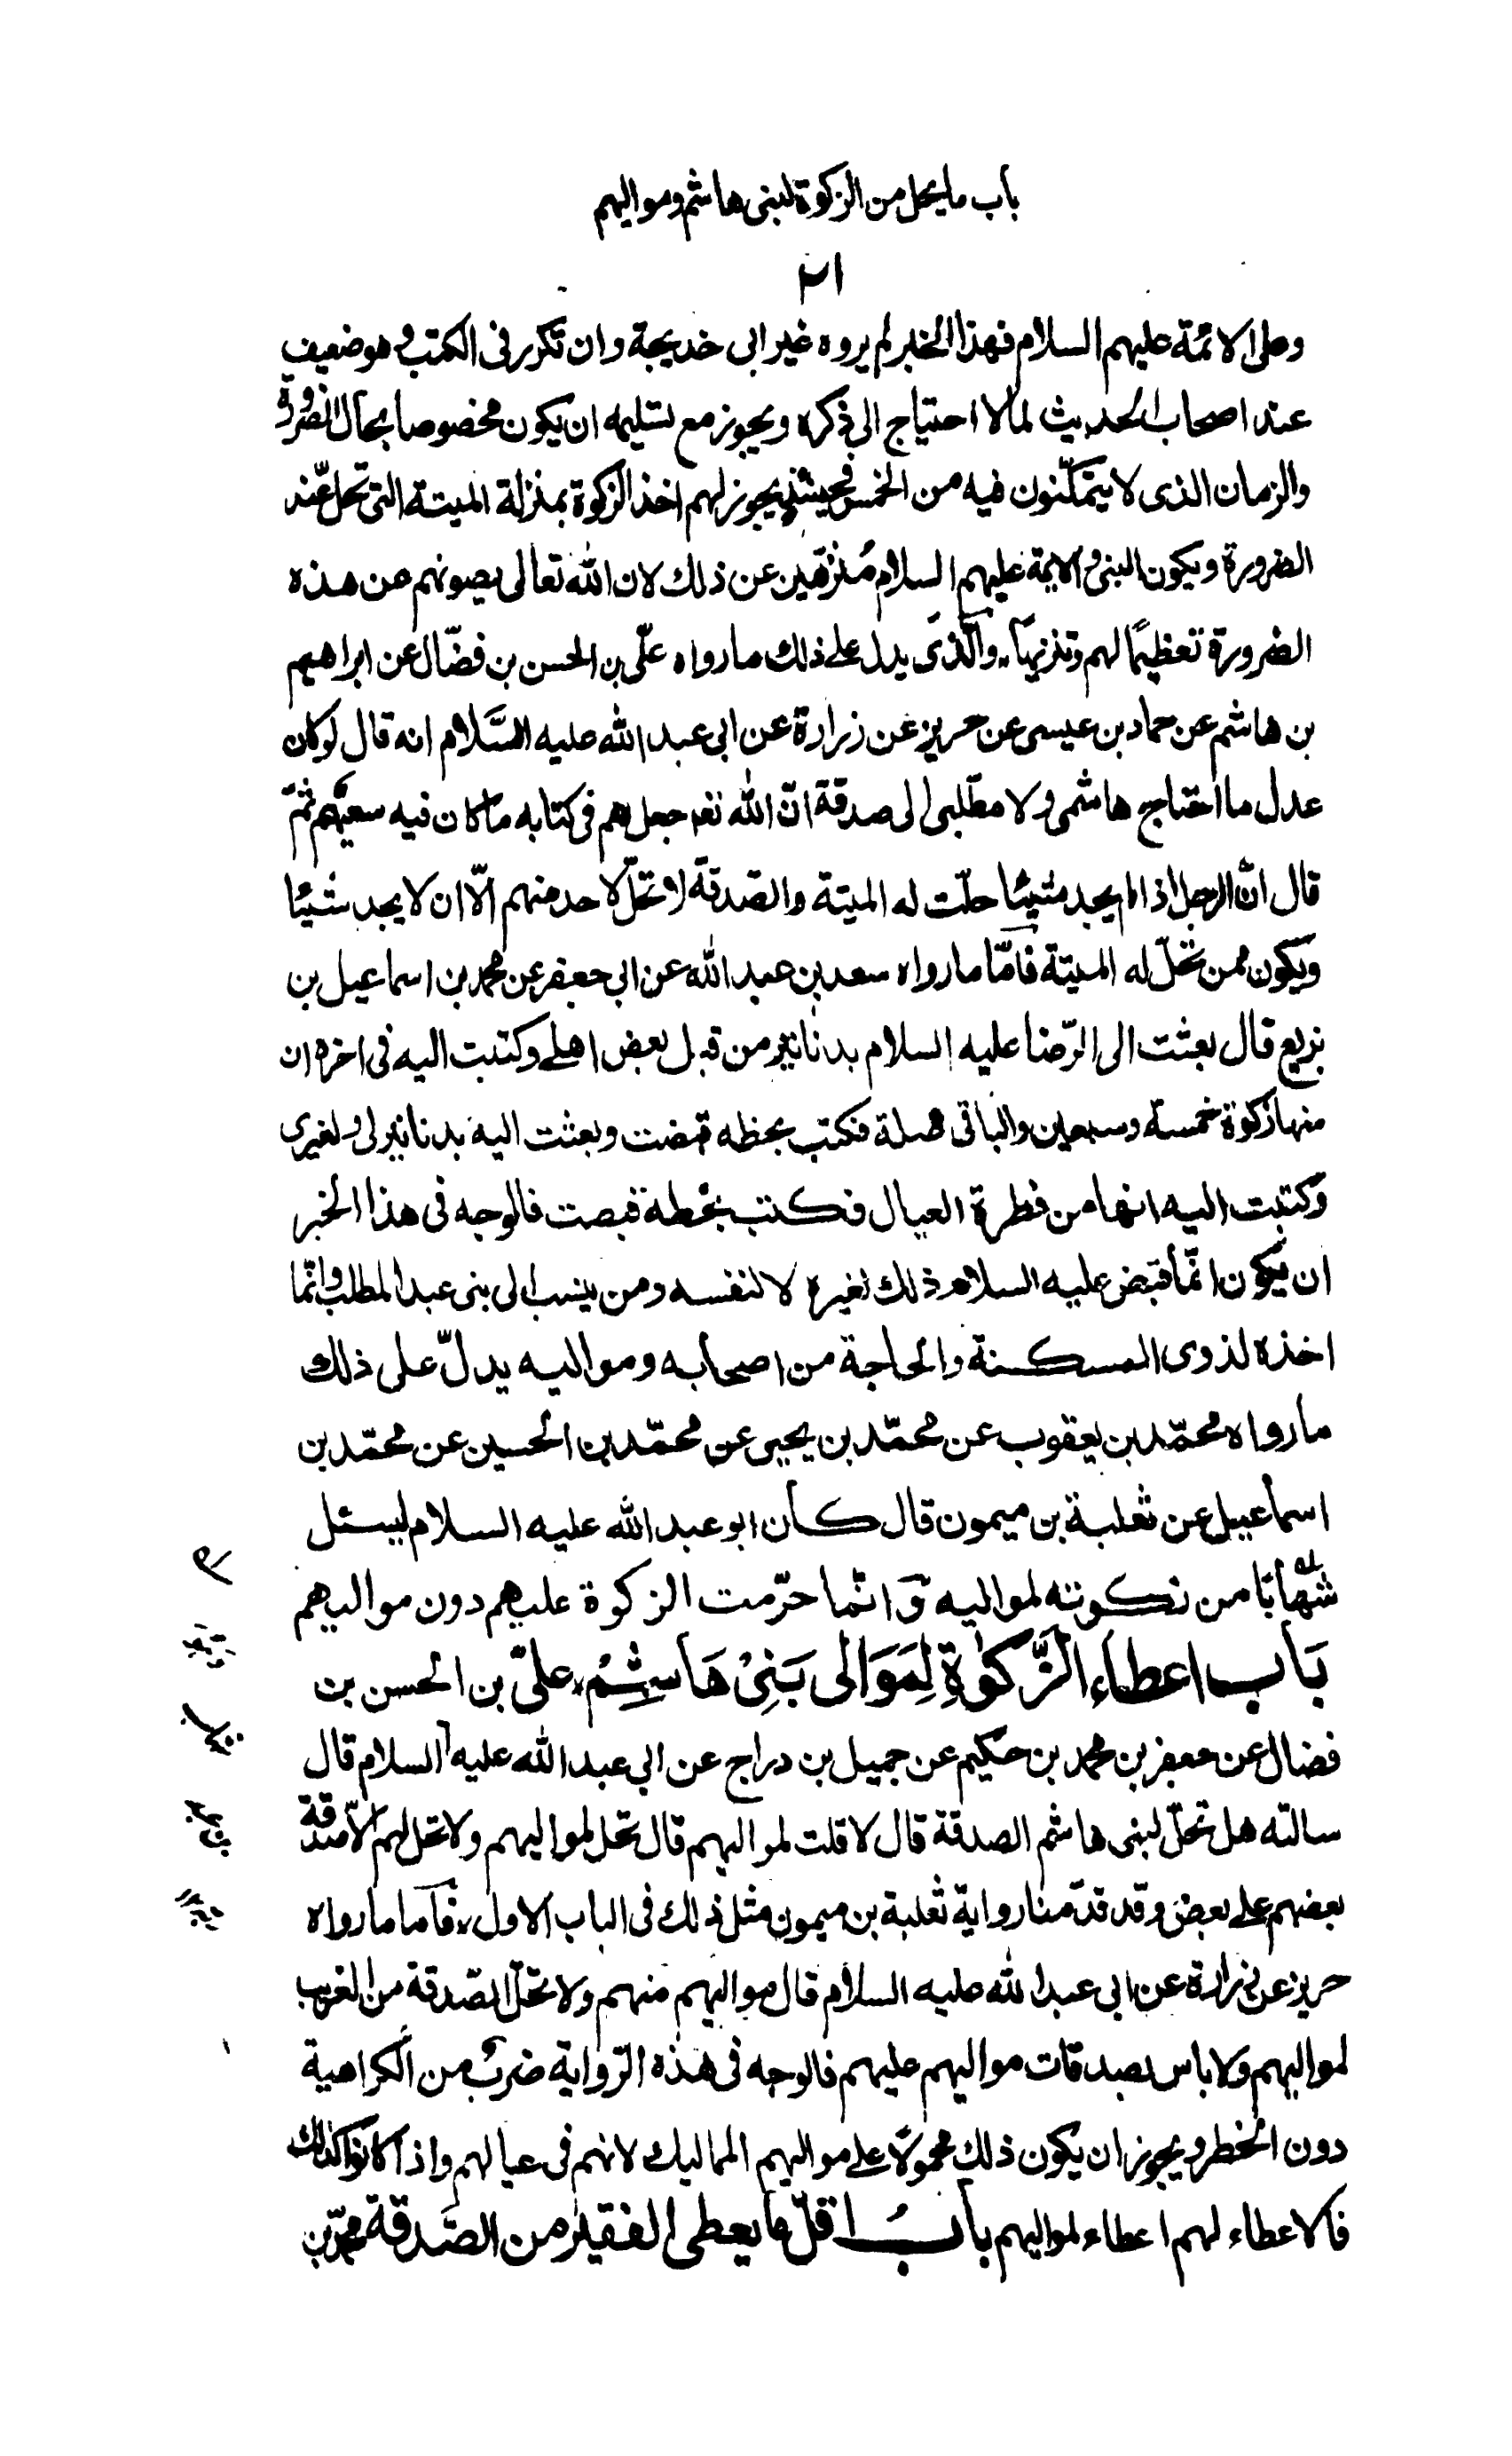 باب ما يحل من الزكوة لبنى هاشم ومواليهم
٢١
وعلى الائمة عليهم السلام فهذا الخبر لم يروه غير ابى خديجة وان تكرر فى الكتب وهو ضعيف
عند اصحاب الحديث لما لا احتياج الى ذكره ويجوز مع تسليمه ان يكون مخصوصا بحال الضرورة
والزمان الذى لا يتمكّنون فيه من الخمس فحينئذ يجوز لهم اخذ الزكوة بمنزلة الميتة التى تحل عند
الضرورة ويكون النبى والائمة عليهم السلام مُنزّهين عن ذلك لان الله تعالى يصونهم عن هذه
الضرورة تعظيمًا لهم وتنزيها، والّذى يدل على ذلك ما رواه علّى بن الحسن بن فضّال عن ابراهيم
بن هاشم عن حماد بن عيسى عن حريز عن زرارة عن ابى عبد الله عليه السَّلام انه قال لو كان
عدل ما احتاج هاشمى ولا مطّلبى الى صدقة انّ الله تعه جعل لهم فى كتابه ما كان فيه سعتهم ثمّ
قال انّ الرجل اذا لم يجد شيئا حلّت له الميتة والصّدقة لا تحلّ لاحد منهم الّا ان لا يجد شيئا
ويكون ممن تحلّ له الميتة فامّا ما رواه سعد بن عبد الله عن ابى جعفر عن محمد بن اسماعيل بن
بزيع قال بعثت الى الرّضا عليه السلام بدنانير من قبل بعض اهلى وكتبت اليه فى اخره ان
منها زكوة خمسة وسبعين والباقى صلة فكتب بخطه قبضت وبعثت اليه بدنانير لى ولغيرى
وكتبت اليه انها من فطرة العيال فكتب بخطه قبضت فالوجه فى هذا الخبر
ان يكون انّما قبض عليه السلام ذلك لغيره لا لنفسه ومن ينسب الى بنى عبد المطلب وانّما
اخذه لذوى المسكنة والحاجة من اصحابه ومواليه يدلّ على ذلك
ما رواه محمّد بن يعقوب عن محمّد بن يحيى عن محمّد بن الحسين عن محمّد بن
اسماعيل عن ثعلبة بن ميمون قال كان ابو عبد الله عليه السلام ليسئل
شهابًا من زكوته لمواليه وَانّما حرّمت الزكوة عليهم دون مواليهم
بَاب اعطاء الزَّكوٰةِ لِمَوَالى بَنِىْ هَاشِمُ، علىّ بن الحسن بن
فضال عن جعفر بن محمد بن حكيم عن جميل بن دراج عن ابى عبد الله عليه السلام قال
سالته هل تحلّ لبنى هاشم الصدقة قال لا قلت لمواليهم قال تحل لمواليهم ولا تحل لهم الّا صدقة
بعضهم على بعض وقد قدّمنا رواية ثعلبة بن ميمون مثل ذلك فى الباب الاول، فاما ما رواه
حريز عن زرارة عن ابى عبد الله عليه السلام قال مواليهم منهم ولا تحلّ الصّدقة من الغريب
لمواليهم ولا باس بصدقات مواليهم عليهم فالوجه فى هذه الرّواية ضربٌ من الكراهية
دون الخطر ويجوز ان يكون ذلك محمولًا على مواليهم المماليك لانهم فى عيالهم واذا كانوا كذلك
فالاعطاء لهم اعطاء لمواليهم بابُ اقلّ ما يعطى الفقير من الصَّدقة محمّد بن